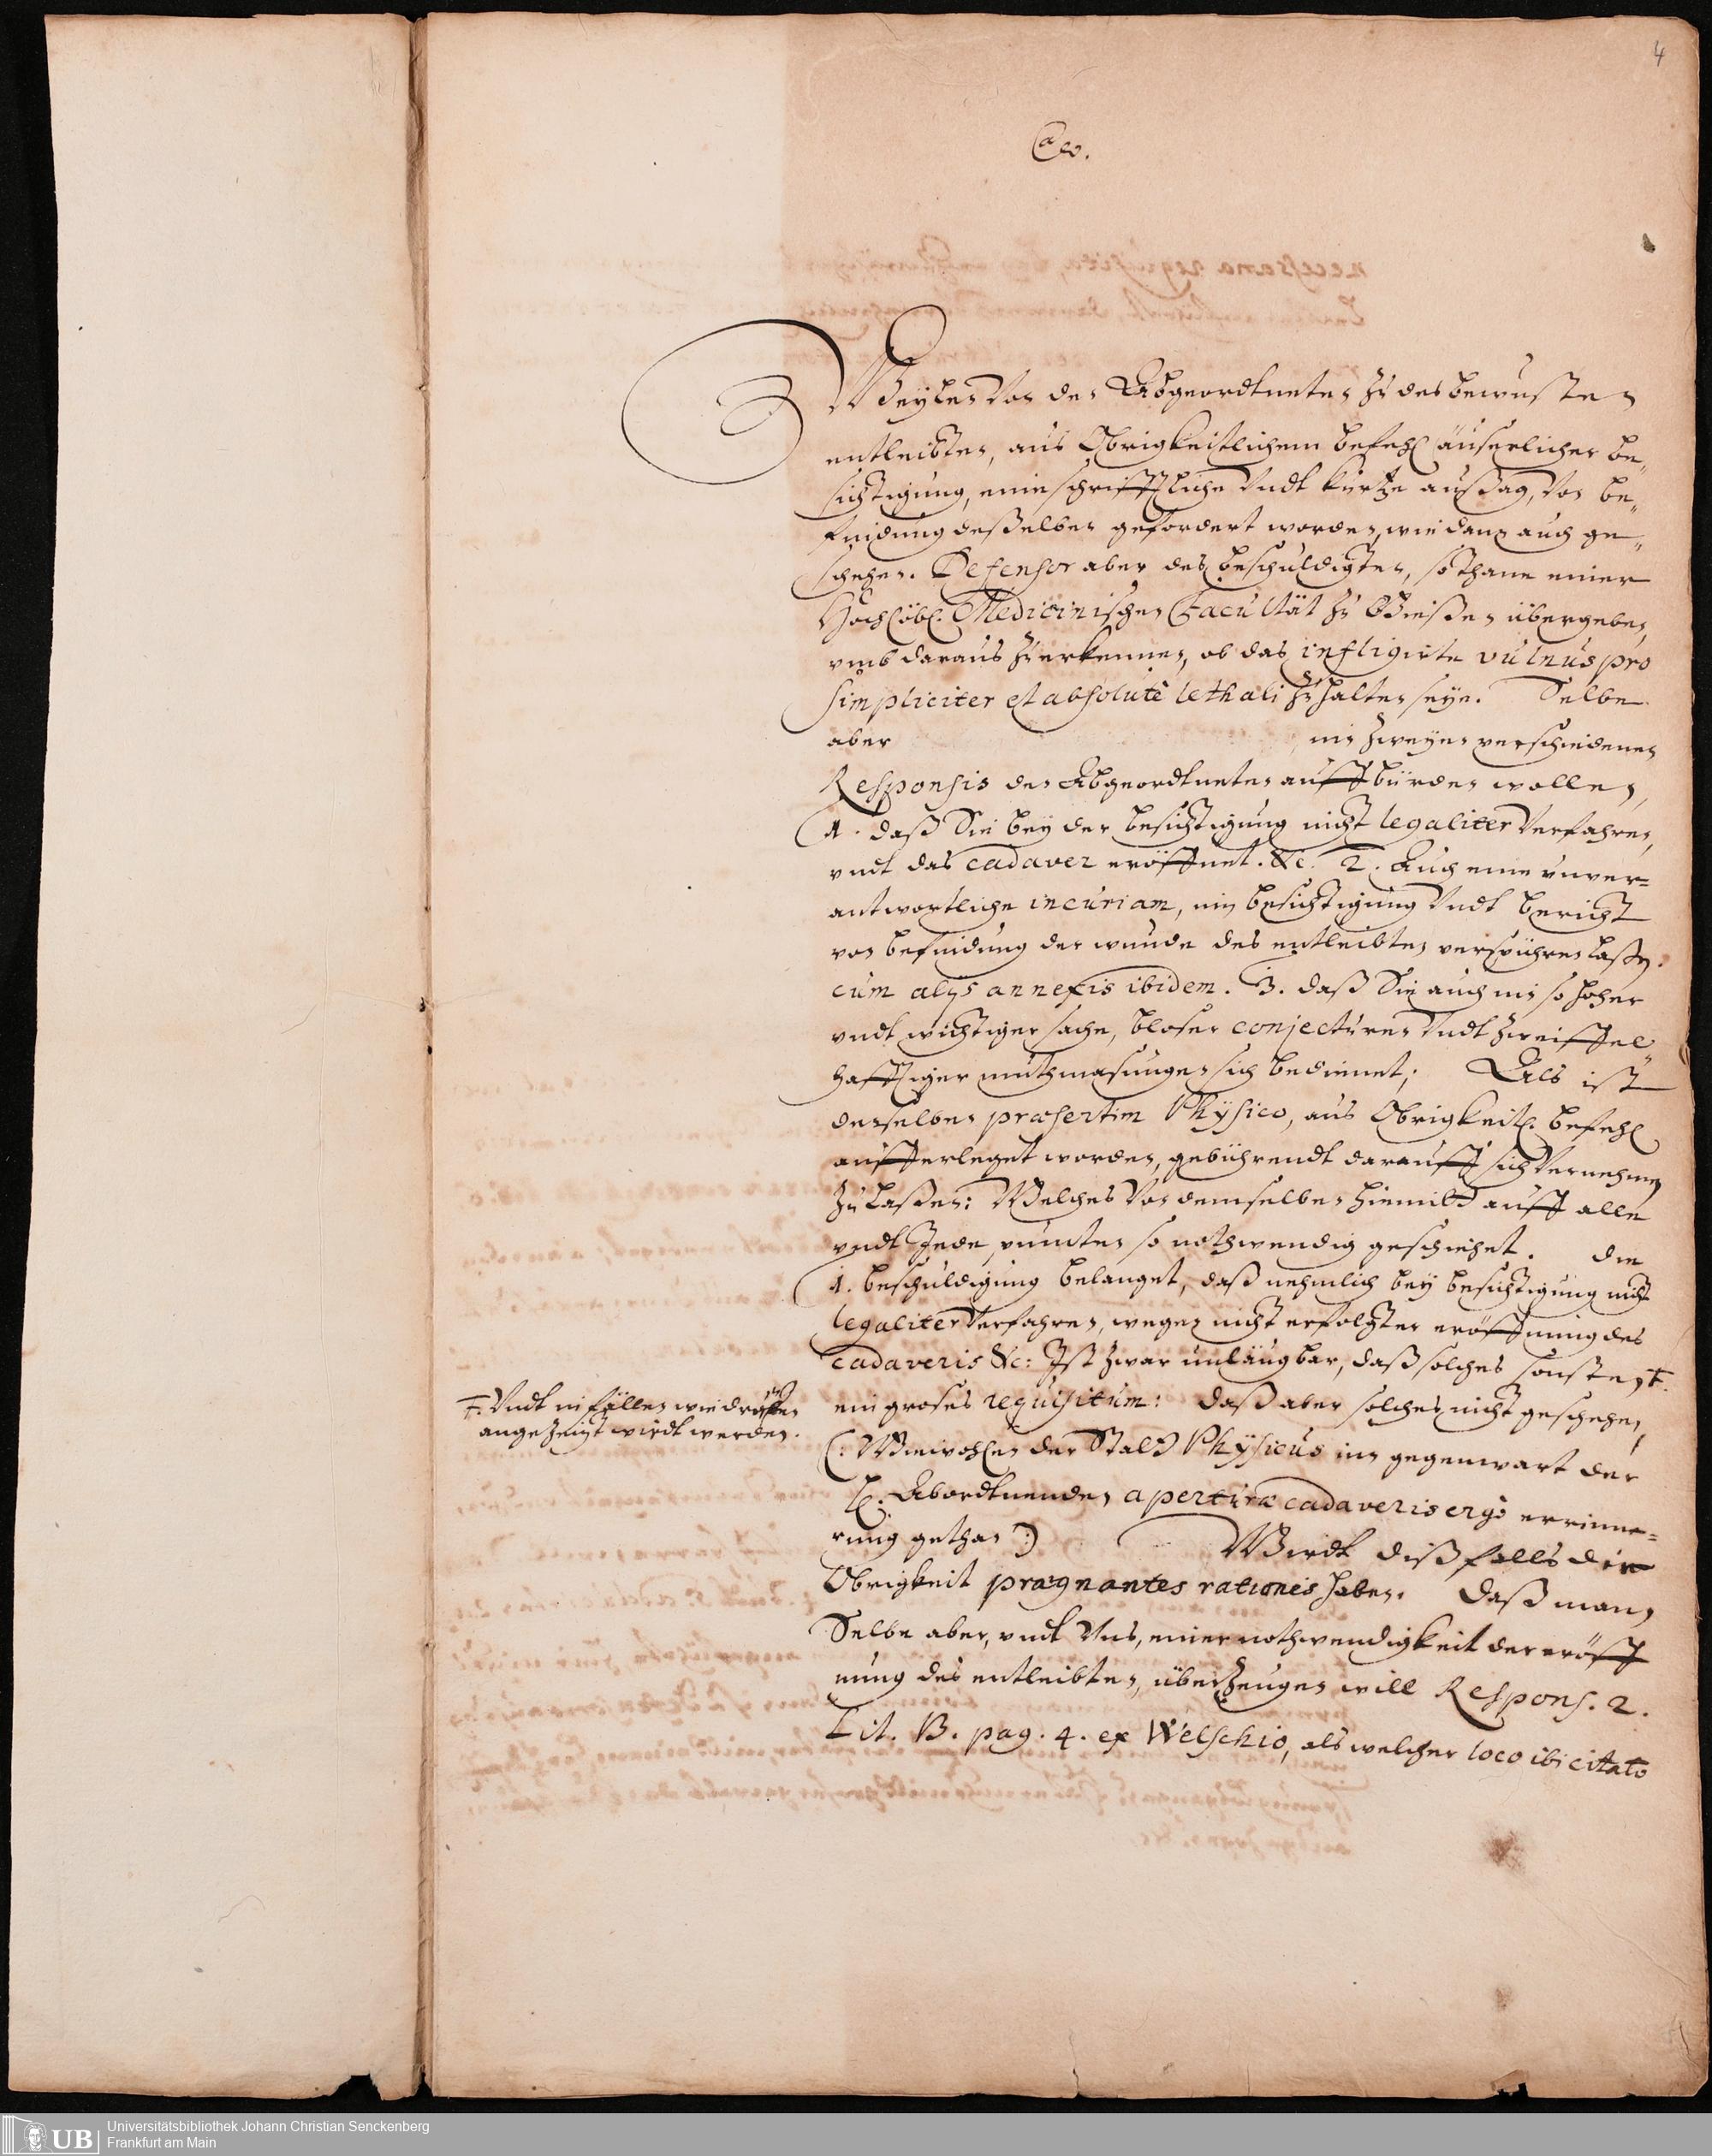 4
Weylen Von den Abgeordtneten zu des bewusten
entleibten, aus Obrigkeitlichem befehl äuserlicher be„
sichtigung, eine schrifftliche Undt kurtze aussag, Von be„
findung desselben gefordert worden, wie dann auch ge„
schehen. Defensor aber des beschuldigten, sothane einer
Hochlöbl. Medicinischen Facultät zu Giessen übergeben,
vmb daraus zu erkennen, ob das infligirte vulnus pro
simpliciter et absolutè lethali zu halten seye. Selbe
aber in zweyen verschiedenen
Responsis den Abgeordtneten auffbürden wollen,
1. daß Sie bey der besichtigung nicht legaliter Verfahren,
vndt das cadaver eröffnet. &c. 2. Auch eine vnver=
antwortliche incuriam, in besichtigung Undt bericht
von befindung der wunde des entleibten verspühren lassen.
cum alijs annexis ibidem. 3. daß Sie auch in so hoher
vndt wichtiger sache, bloser conjecturen Undt zweiffel„
hafftiger muthmasungen sich bedienet; Als ist
denselben præsertim Physico, aus Obrigkeitl. befehl
aufferleget worden, gebührendt darauff sich Vernehmen
zu lassen: Welches Von demselben hiemitt auff alle
vndt Jede puncten so nothwendig geschiehet. die
1. beschuldigung belanget, daß nehmlich bey besichtigung nicht
legaliter Verfahren, wegen nicht erfolgter eröffnung des
cadaveris &c: Ist zwar unläugbar, daß solches sonsten ‡.
‡. Undt in fällen wie drunten
angezeigt wirdt werden.
ein groses requisitum: daß aber solches nicht geschehen,
(: Wiewohlen der Statt Physicus inn gegenwart der
H. Abordtnenden aperturæ cadaveris ergò errinne=
rung gethan :) Wirdt dißfalls die
Obrigkeit prægnantes rationes haben. Daß mann
Selbe aber, vndt Uns, einer nothwendigkeit der eröff
nung des entleibten, überzeugen will Respons. 2.
Lit. B. pag. 4. ex Welschio, als welcher loco ibi citato
UB
Universitätsbibliothek Johann Christian Senckenberg
Frankfurt am Main